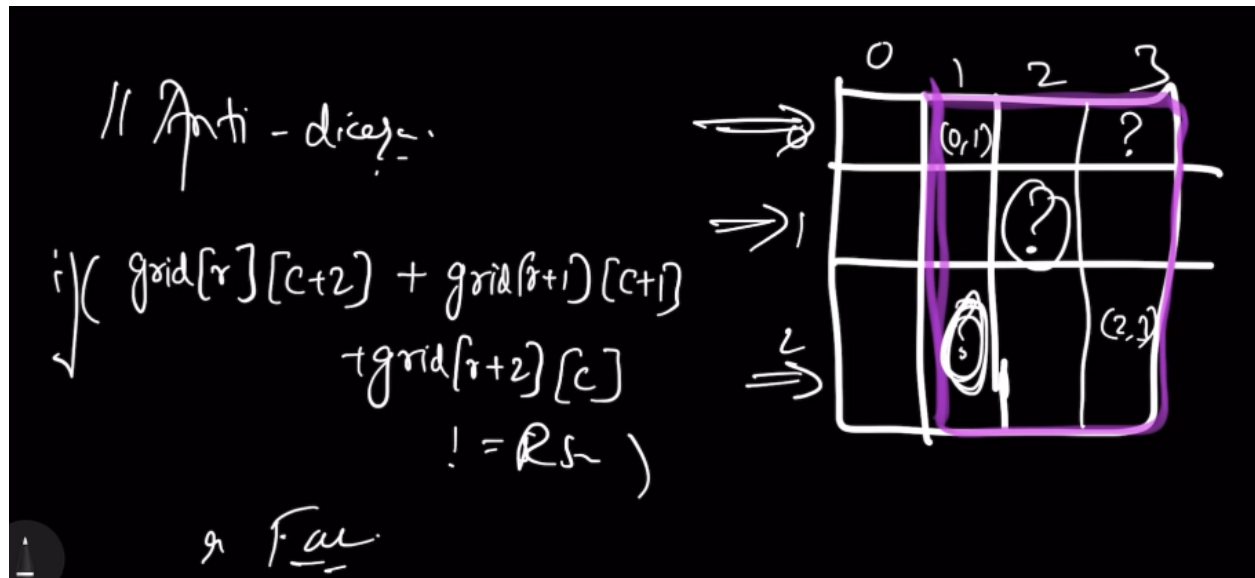 // Anti-diag.
if( grid[r][c+2] + grid[r+1)[c+1]
+grid[r+2)[c]
!= RS )
r Fal.
0 1 2 3
=> 0 (0,1) ?
=> 1 ?
2 => ? (2,3)